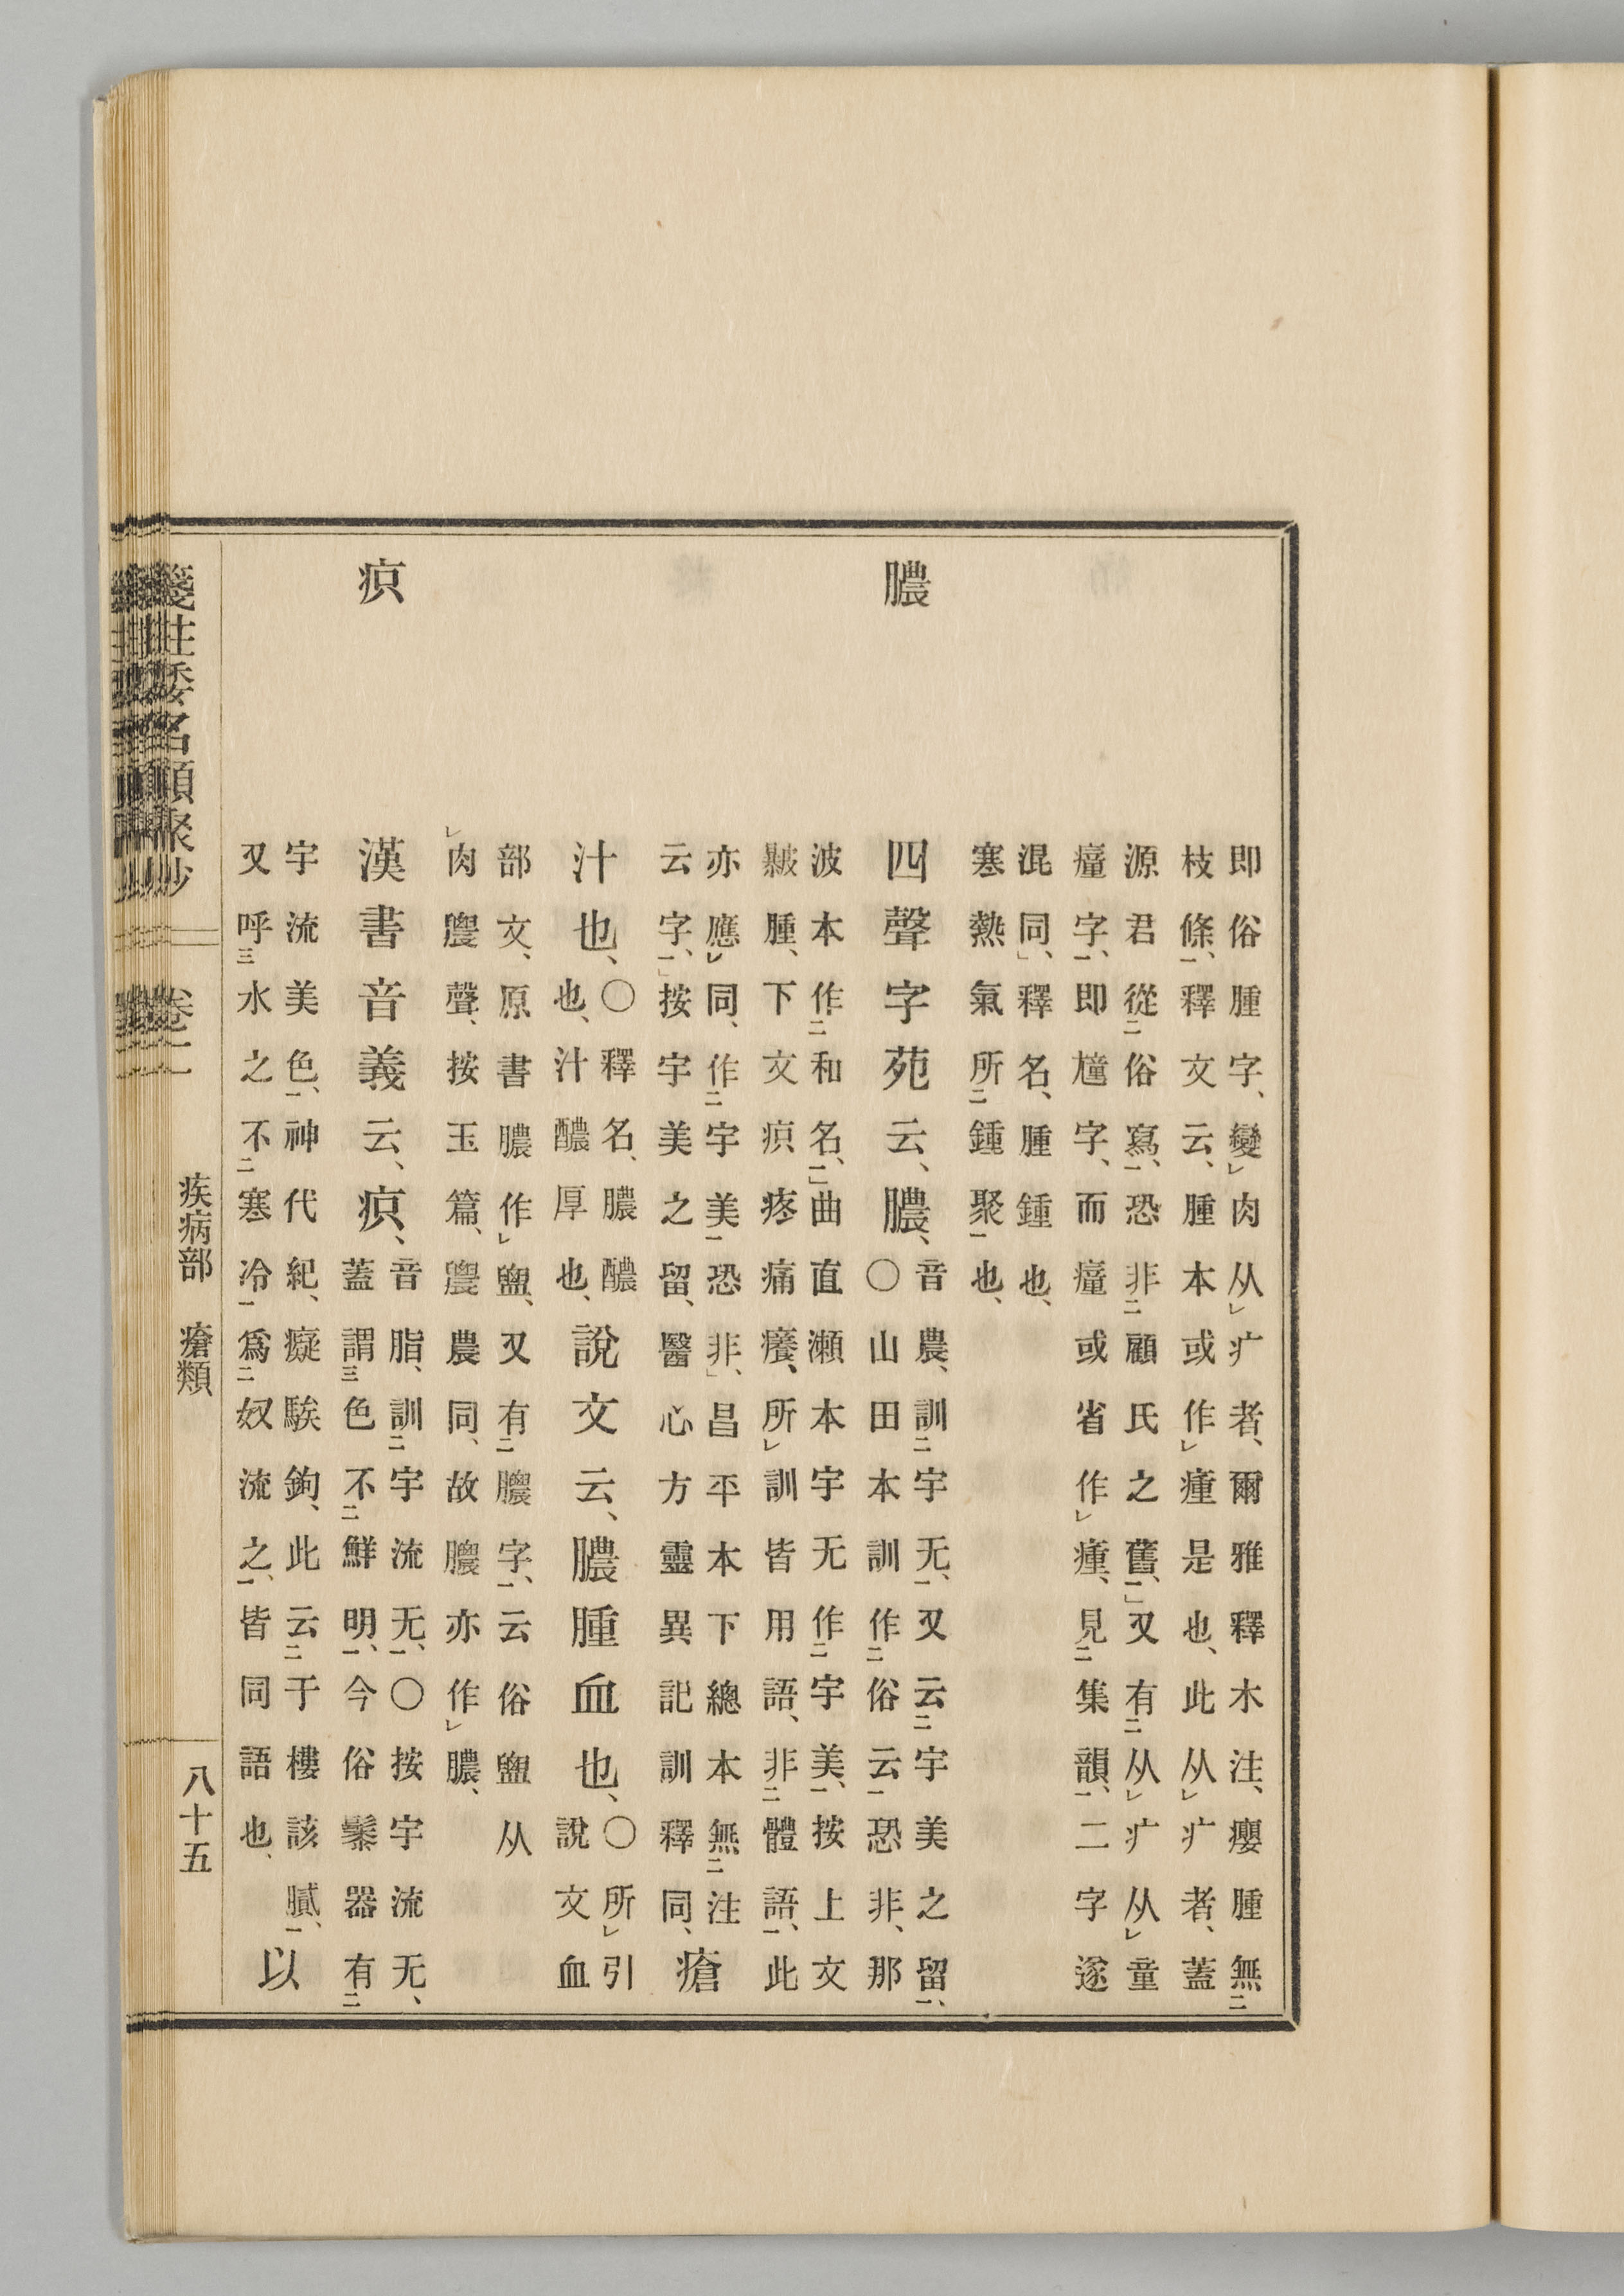 即俗腫字、變レ肉从レ疒者、爾雅釋木注、癭腫無二
枝條一、釋文云、腫本或作レ瘇是也、此从レ疒者、蓋
源君從二俗寫一、恐非二顧氏之舊一、」又有二从レ疒从レ童
字一、即㼿字、而或省作レ瘇、見二集韻一、二字遂
混同」、釋名、腫鍾也、
寒熱氣所二鍾聚一也、
膿
四聲字苑云、膿、
音農、訓二宇无一、又云二宇美之留一、
〇山田本訓作二俗云一恐非、那
波本作二和名一、」曲直瀨本宇无作二宇美一、按上文
皺腫、下文疻疼痛癢、所レ訓皆用語、非二體語一、此
亦應レ同、作二宇美一恐非」、昌平本下總本無二注
云字一、」按宇美之留、醫心方靈異記訓釋同、
瘡
汁也、
〇釋名、膿醲
也、汁醲厚也、
說文云、膿腫血也、
〇所レ引
說文血
部文、原書膿作レ盥、又有二膿字一、云俗盥从
レ肉農聲、按玉篇、農同、故膿亦作レ膿、
疻
漢書音義云、疻、
音脂、訓二宇流无一、〇按宇流无、
蓋謂三色不二鮮明一、今俗鬃器有二
宇流美色一、神代紀、癡騃鉤、此云二于樓該膩一、
又呼三水之不二寒冷一爲二奴流之一、皆同語也、
以
箋注倭名類聚抄 卷二 疾病部 瘡類 八十五